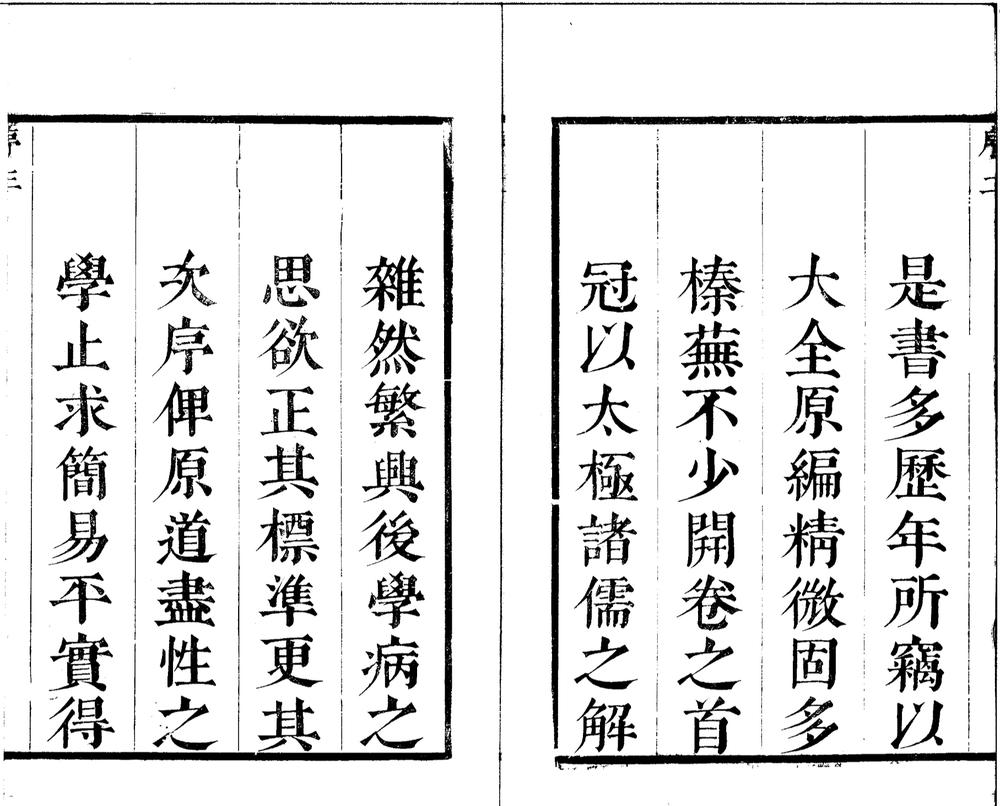 序二
是書多歷年所竊以
大全原編精微固多
榛蕪不少開卷之首
冠以太極諸儒之解
雜然繁興後學病之
思欲正其標準更其
次序俾原道盡性之
學止求簡易平實得
序三